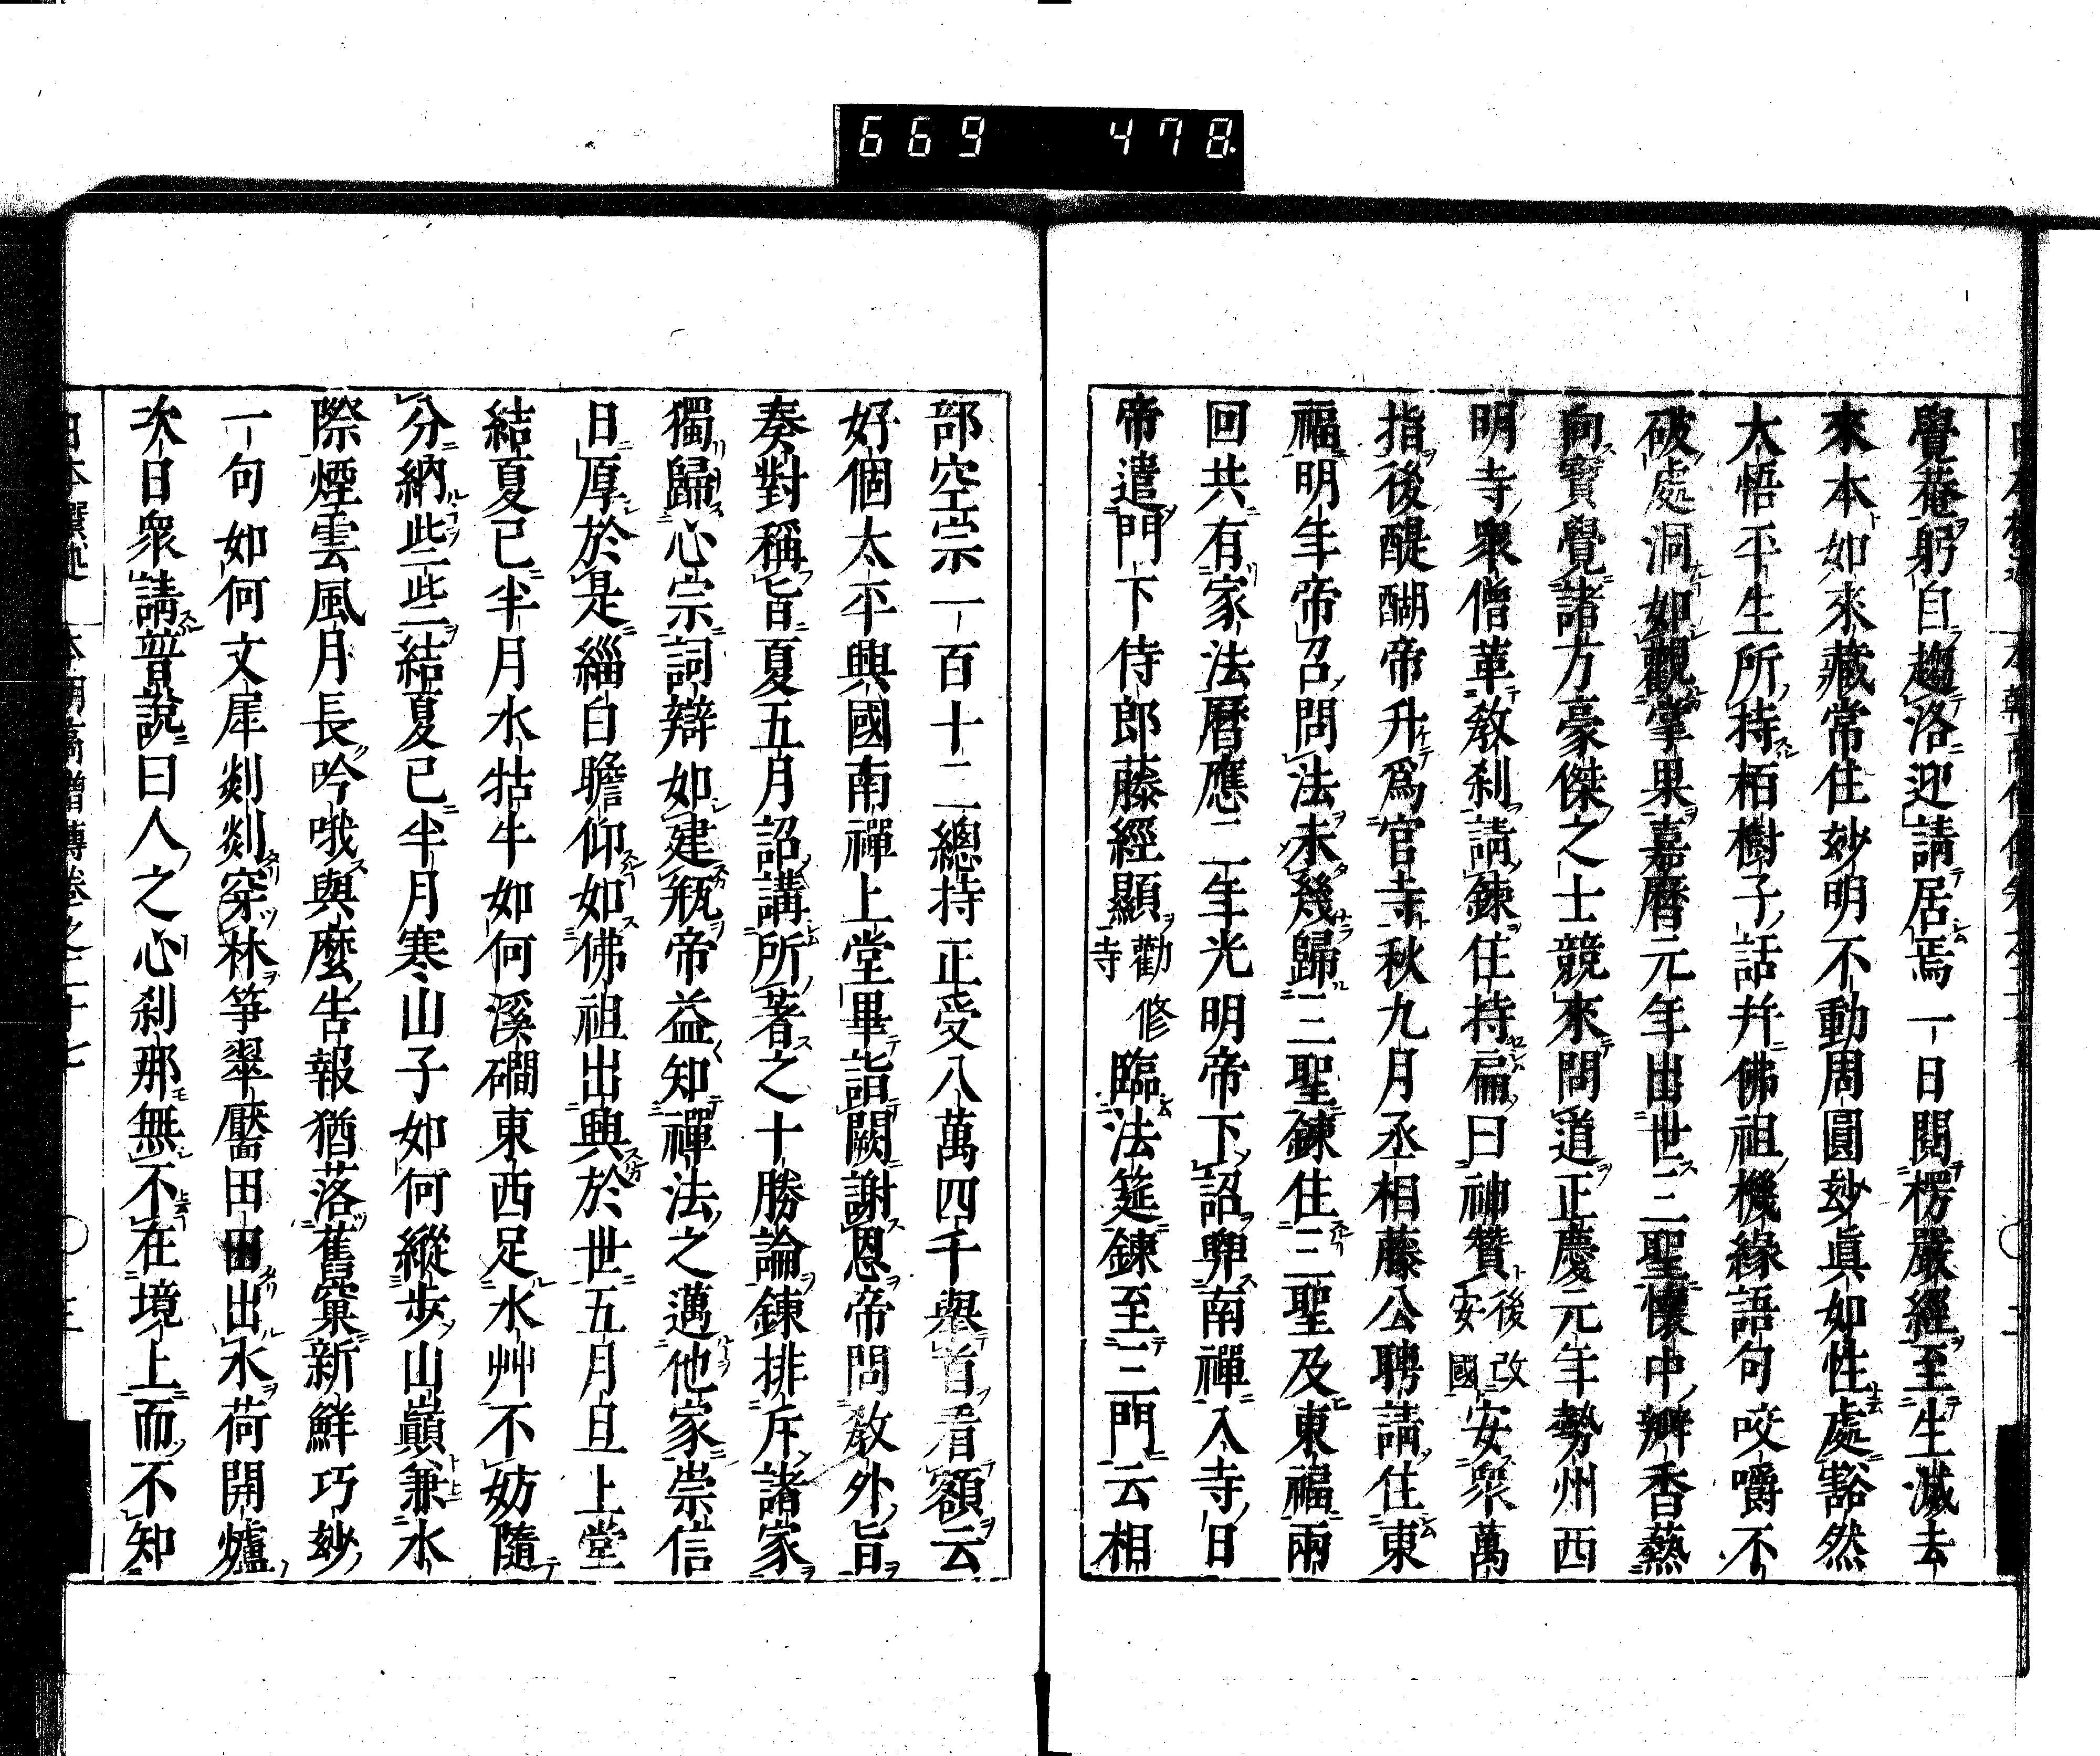 669 478
覺菴躬自趨洛迎請居焉一日閱楞嚴經至生滅去
來本如來藏常住妙明不動周圓妙眞如性處豁然
大悟平生所持栢樹子話幷佛祖機緣語句咬嚼不
破處洞如觀掌果嘉曆元年出世三聖懷中瓣香爇
向寶覺諸方豪傑之士競來問道正慶元年勢州西
明寺衆僧革教刹請鍊住持扁曰神贊後改安國安衆萬
指後醍醐帝升爲官寺秋九月丞相藤公聘請住東
福明年帝召問法未幾歸三聖鍊住三聖及東福兩
回共有家法曆應二年光明帝下詔卑南禪入寺日
帝遣門下侍郎藤經顯勸修寺臨法筵鍊至三門云相
部空宗一百十二總持正受八萬四千擧首看額云
好個太平興國南禪上堂畢詣闕謝恩帝問教外旨
奏對稱旨夏五月詔講所著之十勝論鍊排斥諸家
獨歸心宗詞辯如建瓶帝益知禪法之邁他家崇信
日厚於是緇白瞻仰如佛祖出興於世五月旦上堂
結夏已半月水牯牛如何溪磵東西足水艸不妨隨
分納些些結夏已半月寒山子如何縱步山巓兼水
際煙雲風月長吟哦與麼告報猶落舊窠新鮮巧妙
一句如何文犀剡剡穿林笋翠靨田田出水荷開爐
次日衆請普說曰人之心刹那無不在境上而不知
日本撰述 本朝高僧傳卷之二十七 三